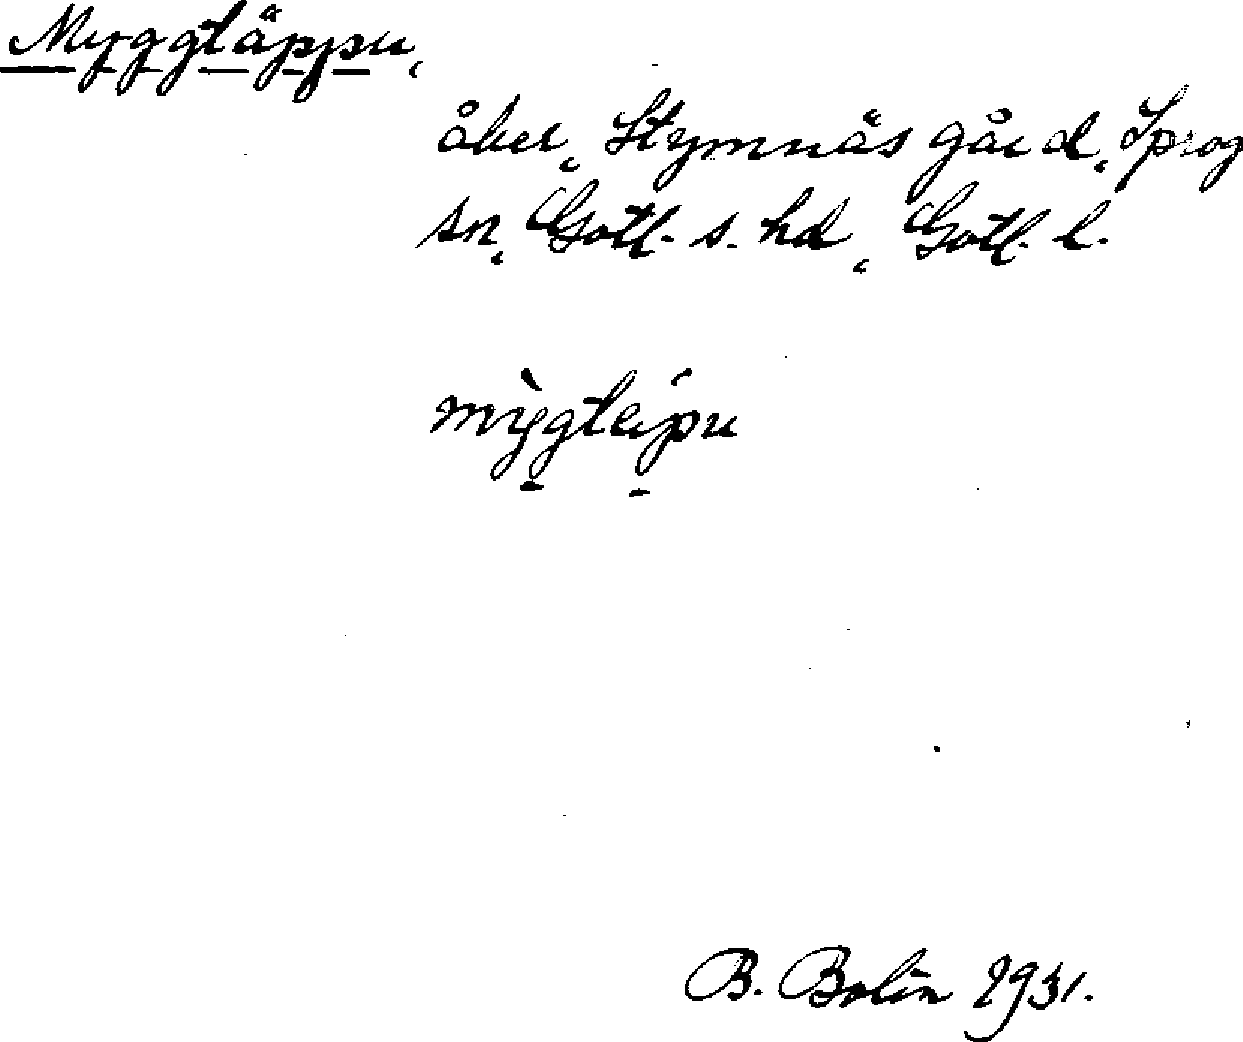 Myggtäppu,
åker, Stymnäs gård, Sprog
sn, Gotl. s. hd, Gotl. l.
mỳgtei̇pu
B. Bolin 1931.